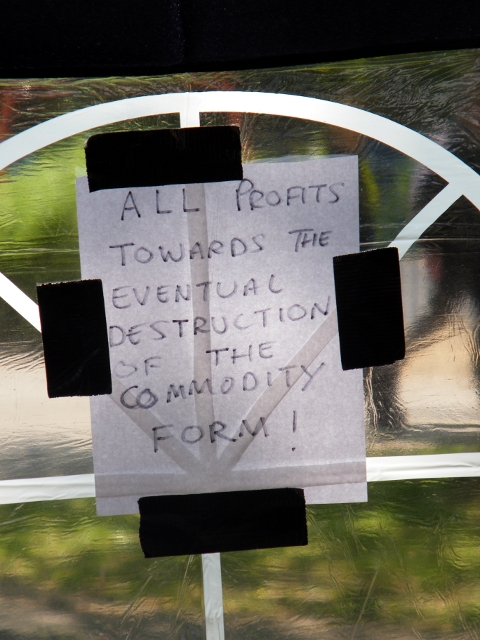 ALL PROFITS
TOWARDS THE
EVENTUAL
DESTRUCTION
OF THE
COMMODITY
FORM!